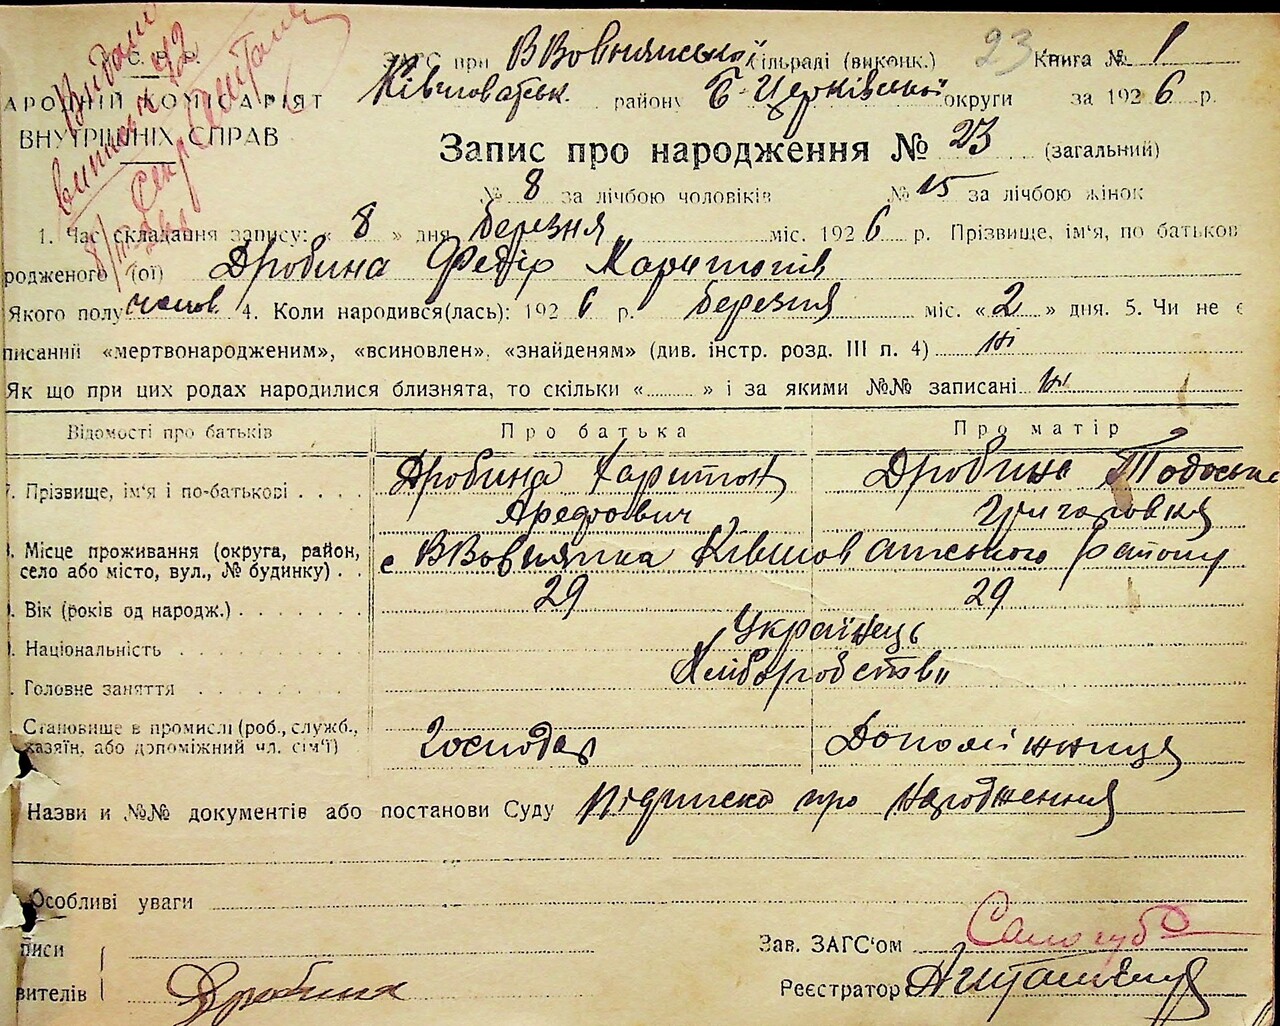 Видано
виписку 42
Секр
У.С.Р.Р.
АРОДНІЙ КОМІСАРІЯТ
ВНУТРІШНІХ СПРАВ
ЗАГС при ВВовнянській сільраді (виконк.) 23 Книга № 1
Ківшоватськ. району Б-Церківської округи за 1926 р.
Запис про народження № 23 (загальний)
№ 8 за лічбою чоловіків № 15 за лічбою жінок
1. Час складання запису: « 8 » дня березня міс. 1926 р. Прізвище, ім'я, по батьков
родженого (ої) Дробина Федір Харитонів
Якого полу чолов. 4. Коли народився(лась): 1926 р. березня міс. «2» дня. 5. Чи не є
писаний «мертвонародженим», «всиновлен», «знайденям» (див. інстр. розд. III п. 4) ні
Як що при цих родах народилися близнята, то скільки «........» і за якими №№ записані ні
Відомості про батьків Про батька Про матір
7. Прізвище, ім'я і по-батькові . . . . Дробина Харитон Дробина Тодоська
Арефович Григоровна
Місце проживання (округа, район, село або місто, вул., № будинку) . . с ВВовнянка Ківшоватського району
Вік (років од народж.) . . . . . . . 29 29
Національність . . . . . . . . . . Українець
Головне заняття . . . . . . . . . Хліборобство
Становище в промислі (роб., служб.,
хазяїн, або допоміжний чл. сім'ї) Господар Допоміжниця
Назви и №№ документів або постанови Суду Підписка про народження
Особливі уваги
писи
вителів Дробина
Зав. ЗАГС'ом Самогуб
Реєстратор